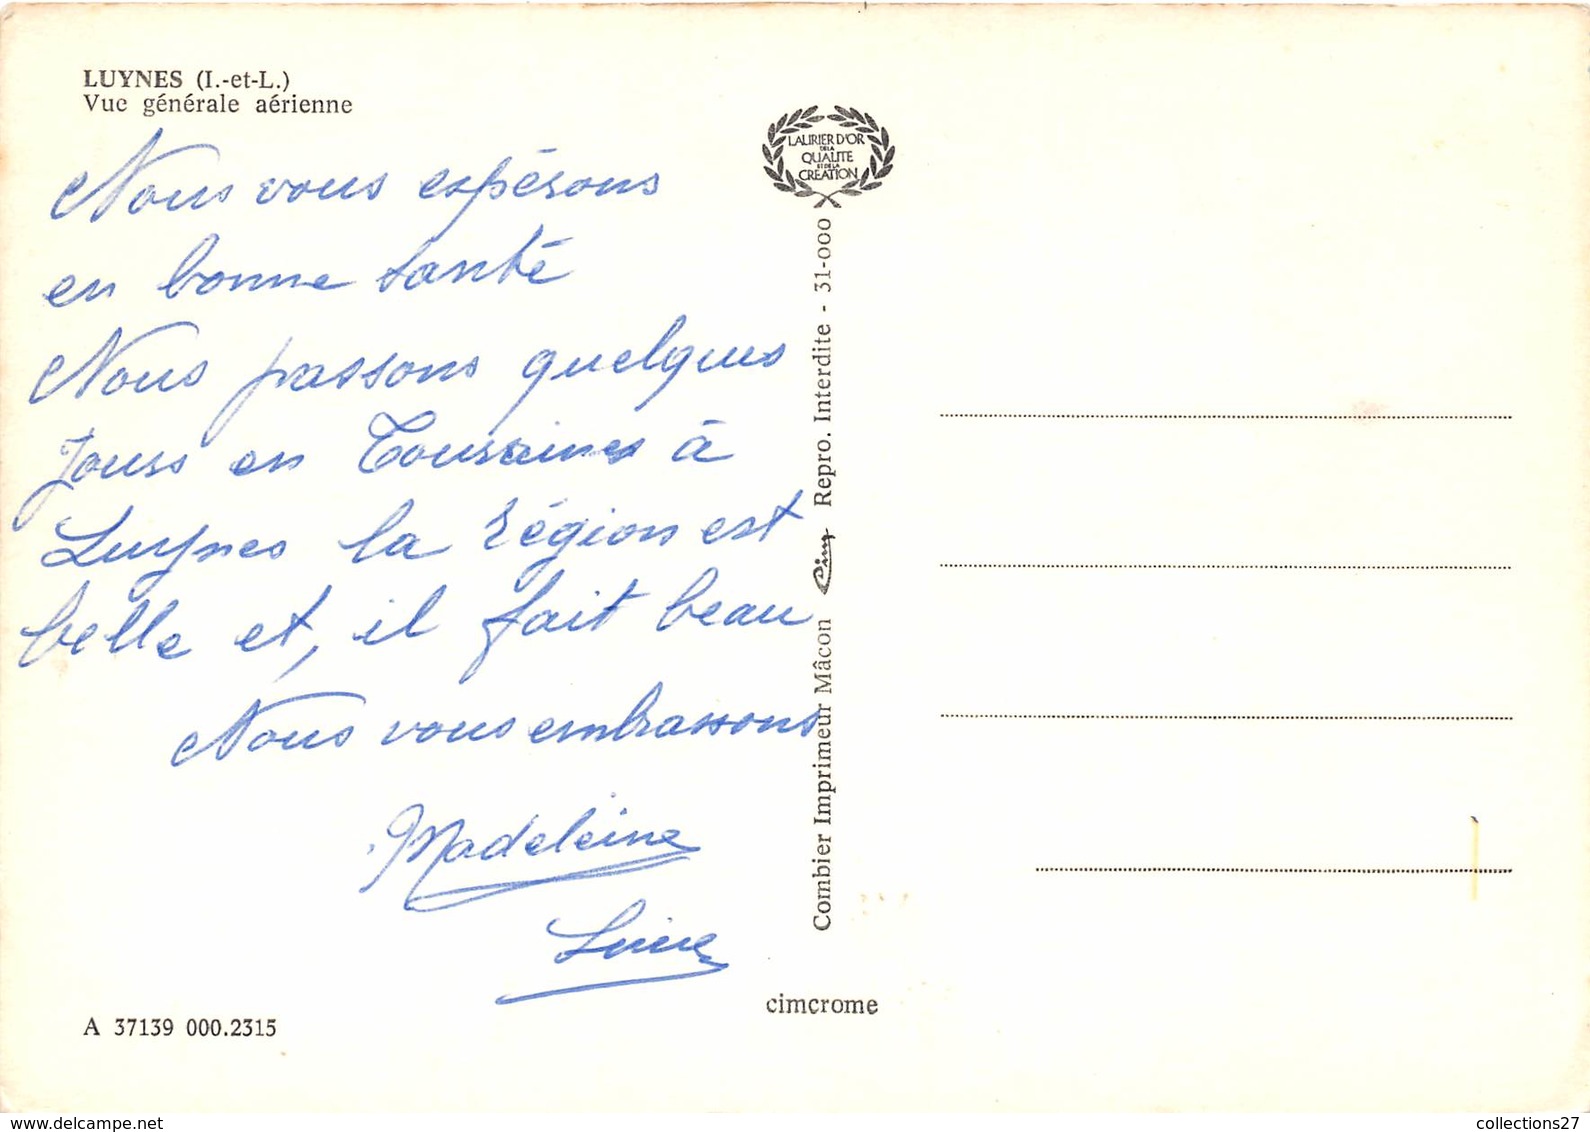 LUYNES (I.-et-L.)
Vue générale aérienne
Nous vous espérons
en bonne santé
Nous passons quelques
Jours en Touraine à
Luynes la région est
belle et, il fait beau
Nous vous embrassons
Madeleine
A 37139 000.2315
LAURIER D'OR
DE LA
QUALITE
ET DE LA
CREATION
Combier Imprimeur Mâcon Cim Repro. Interdite - 31-000
cimcrome
https://www.delcampe.net
collections27